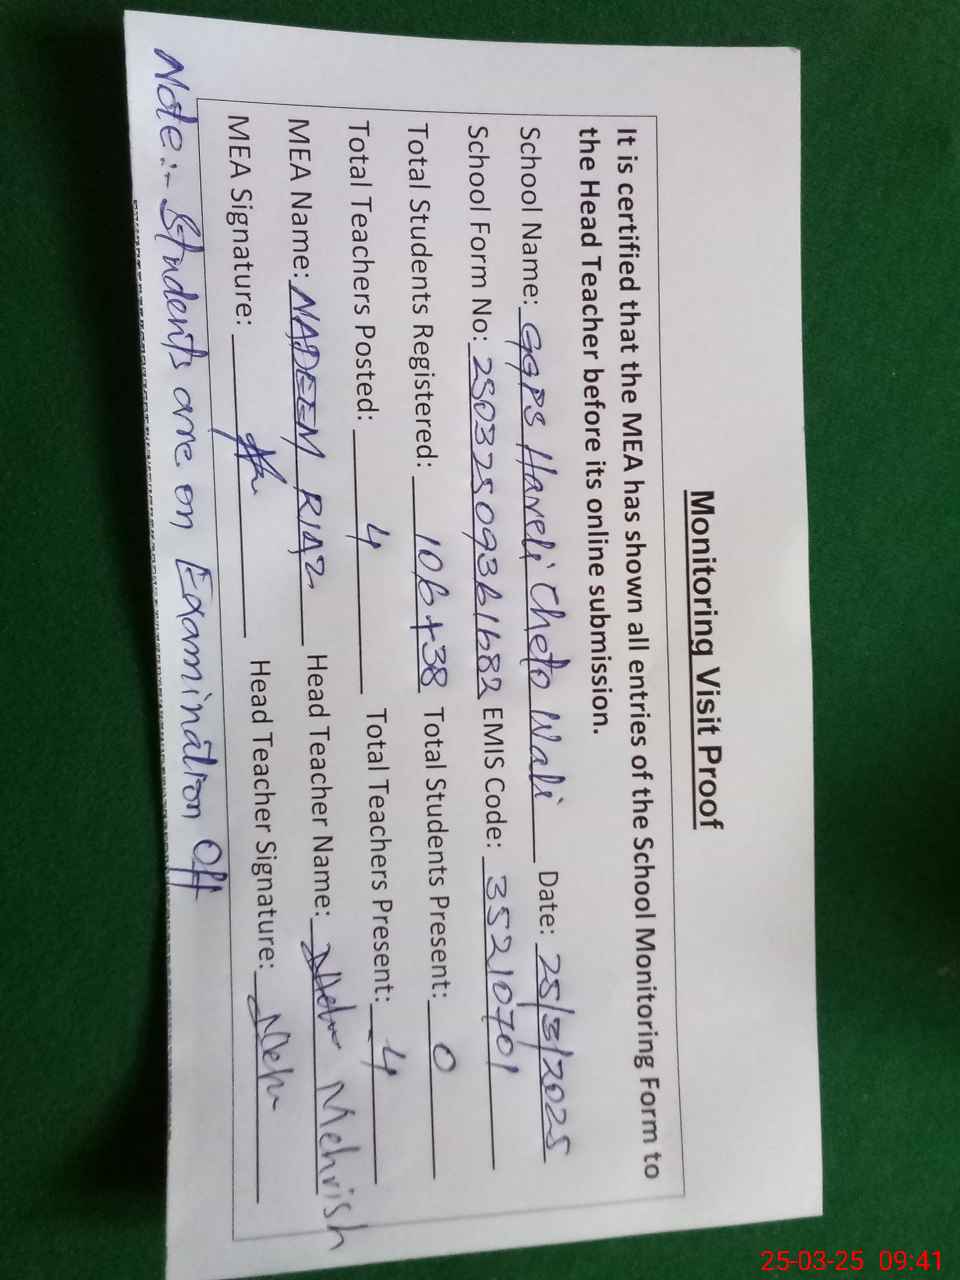 Monitoring Visit Proof
It is certified that the MEA has shown all entries of the School Monitoring Form to
the Head Teacher before its online submission.
School Name: GGPS Haveli Cheto Wali Date: 25/3/2025
School Form No: 25032509361682 EMIS Code: 35210701
Total Students Registered: 106+38 Total Students Present: 0
Total Teachers Posted: 4 Total Teachers Present: 4
MEA Name: NADEEM RIAZ. Head Teacher Name: Mehrish
MEA Signature: Head Teacher Signature:
Note:- Students are on Examination Off
25-03-25 09:41